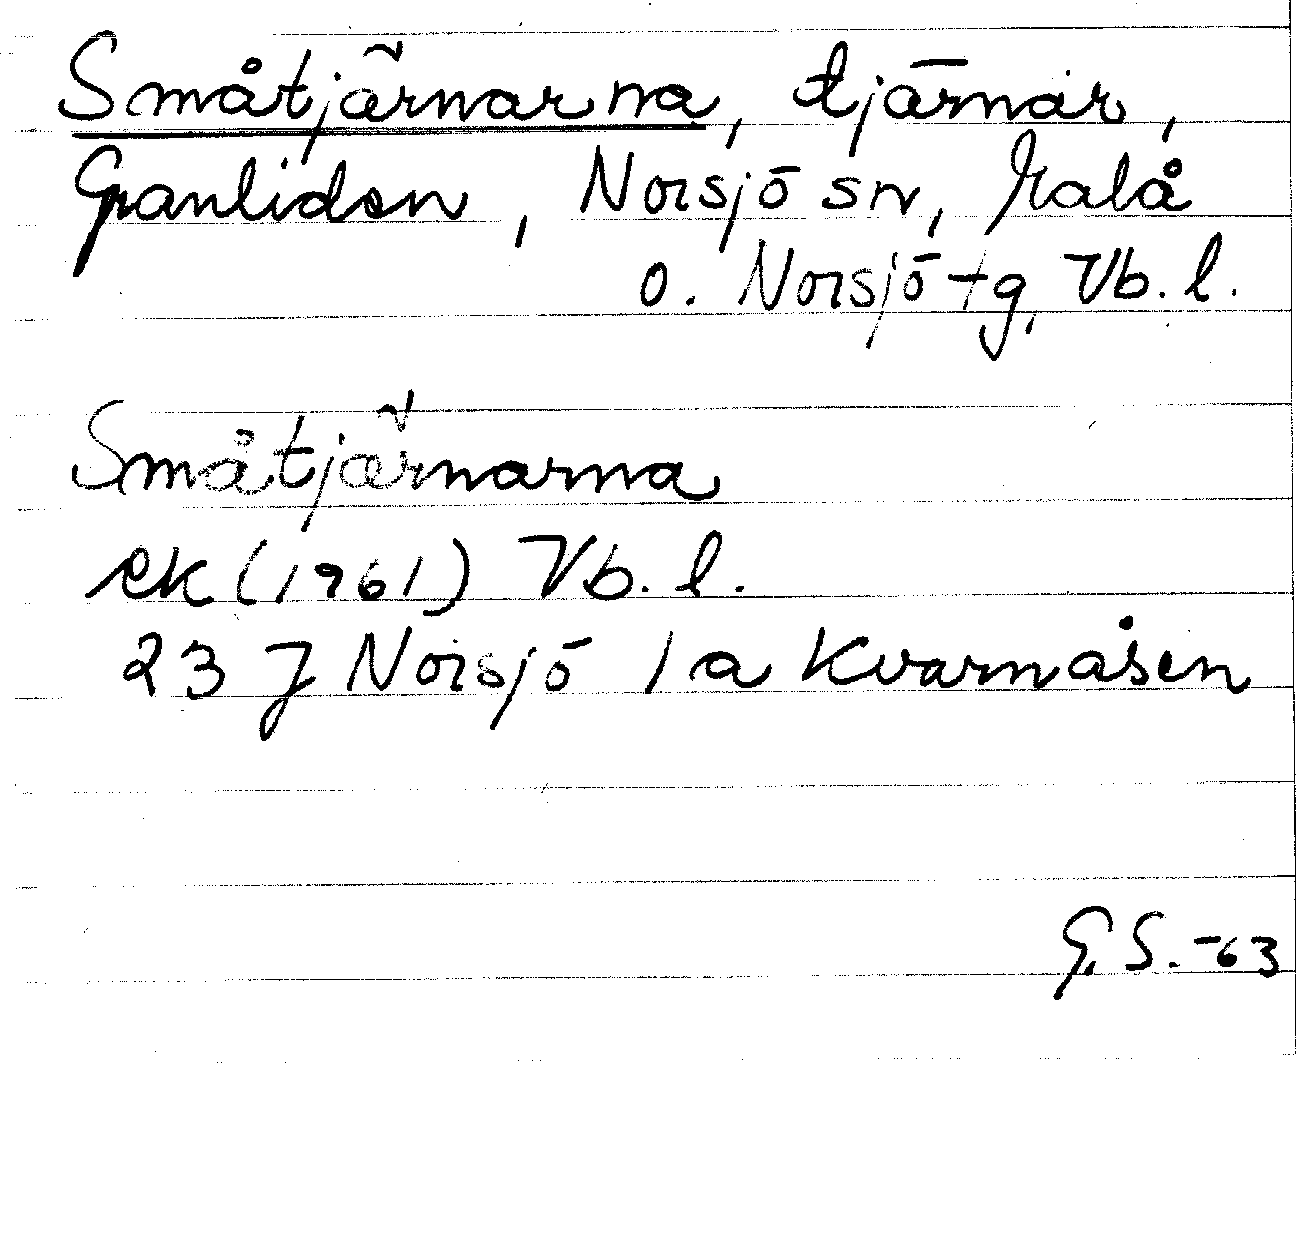 Småtjärnarna, tjärnar,
Granliden, Norsjö sn, Malå
o. Norsjö tg, Vb. l.
Småtjärnarna
ek (1961) Vb. l.
23 J Norsjö 1 a Kvarnåsen
G. S. -63